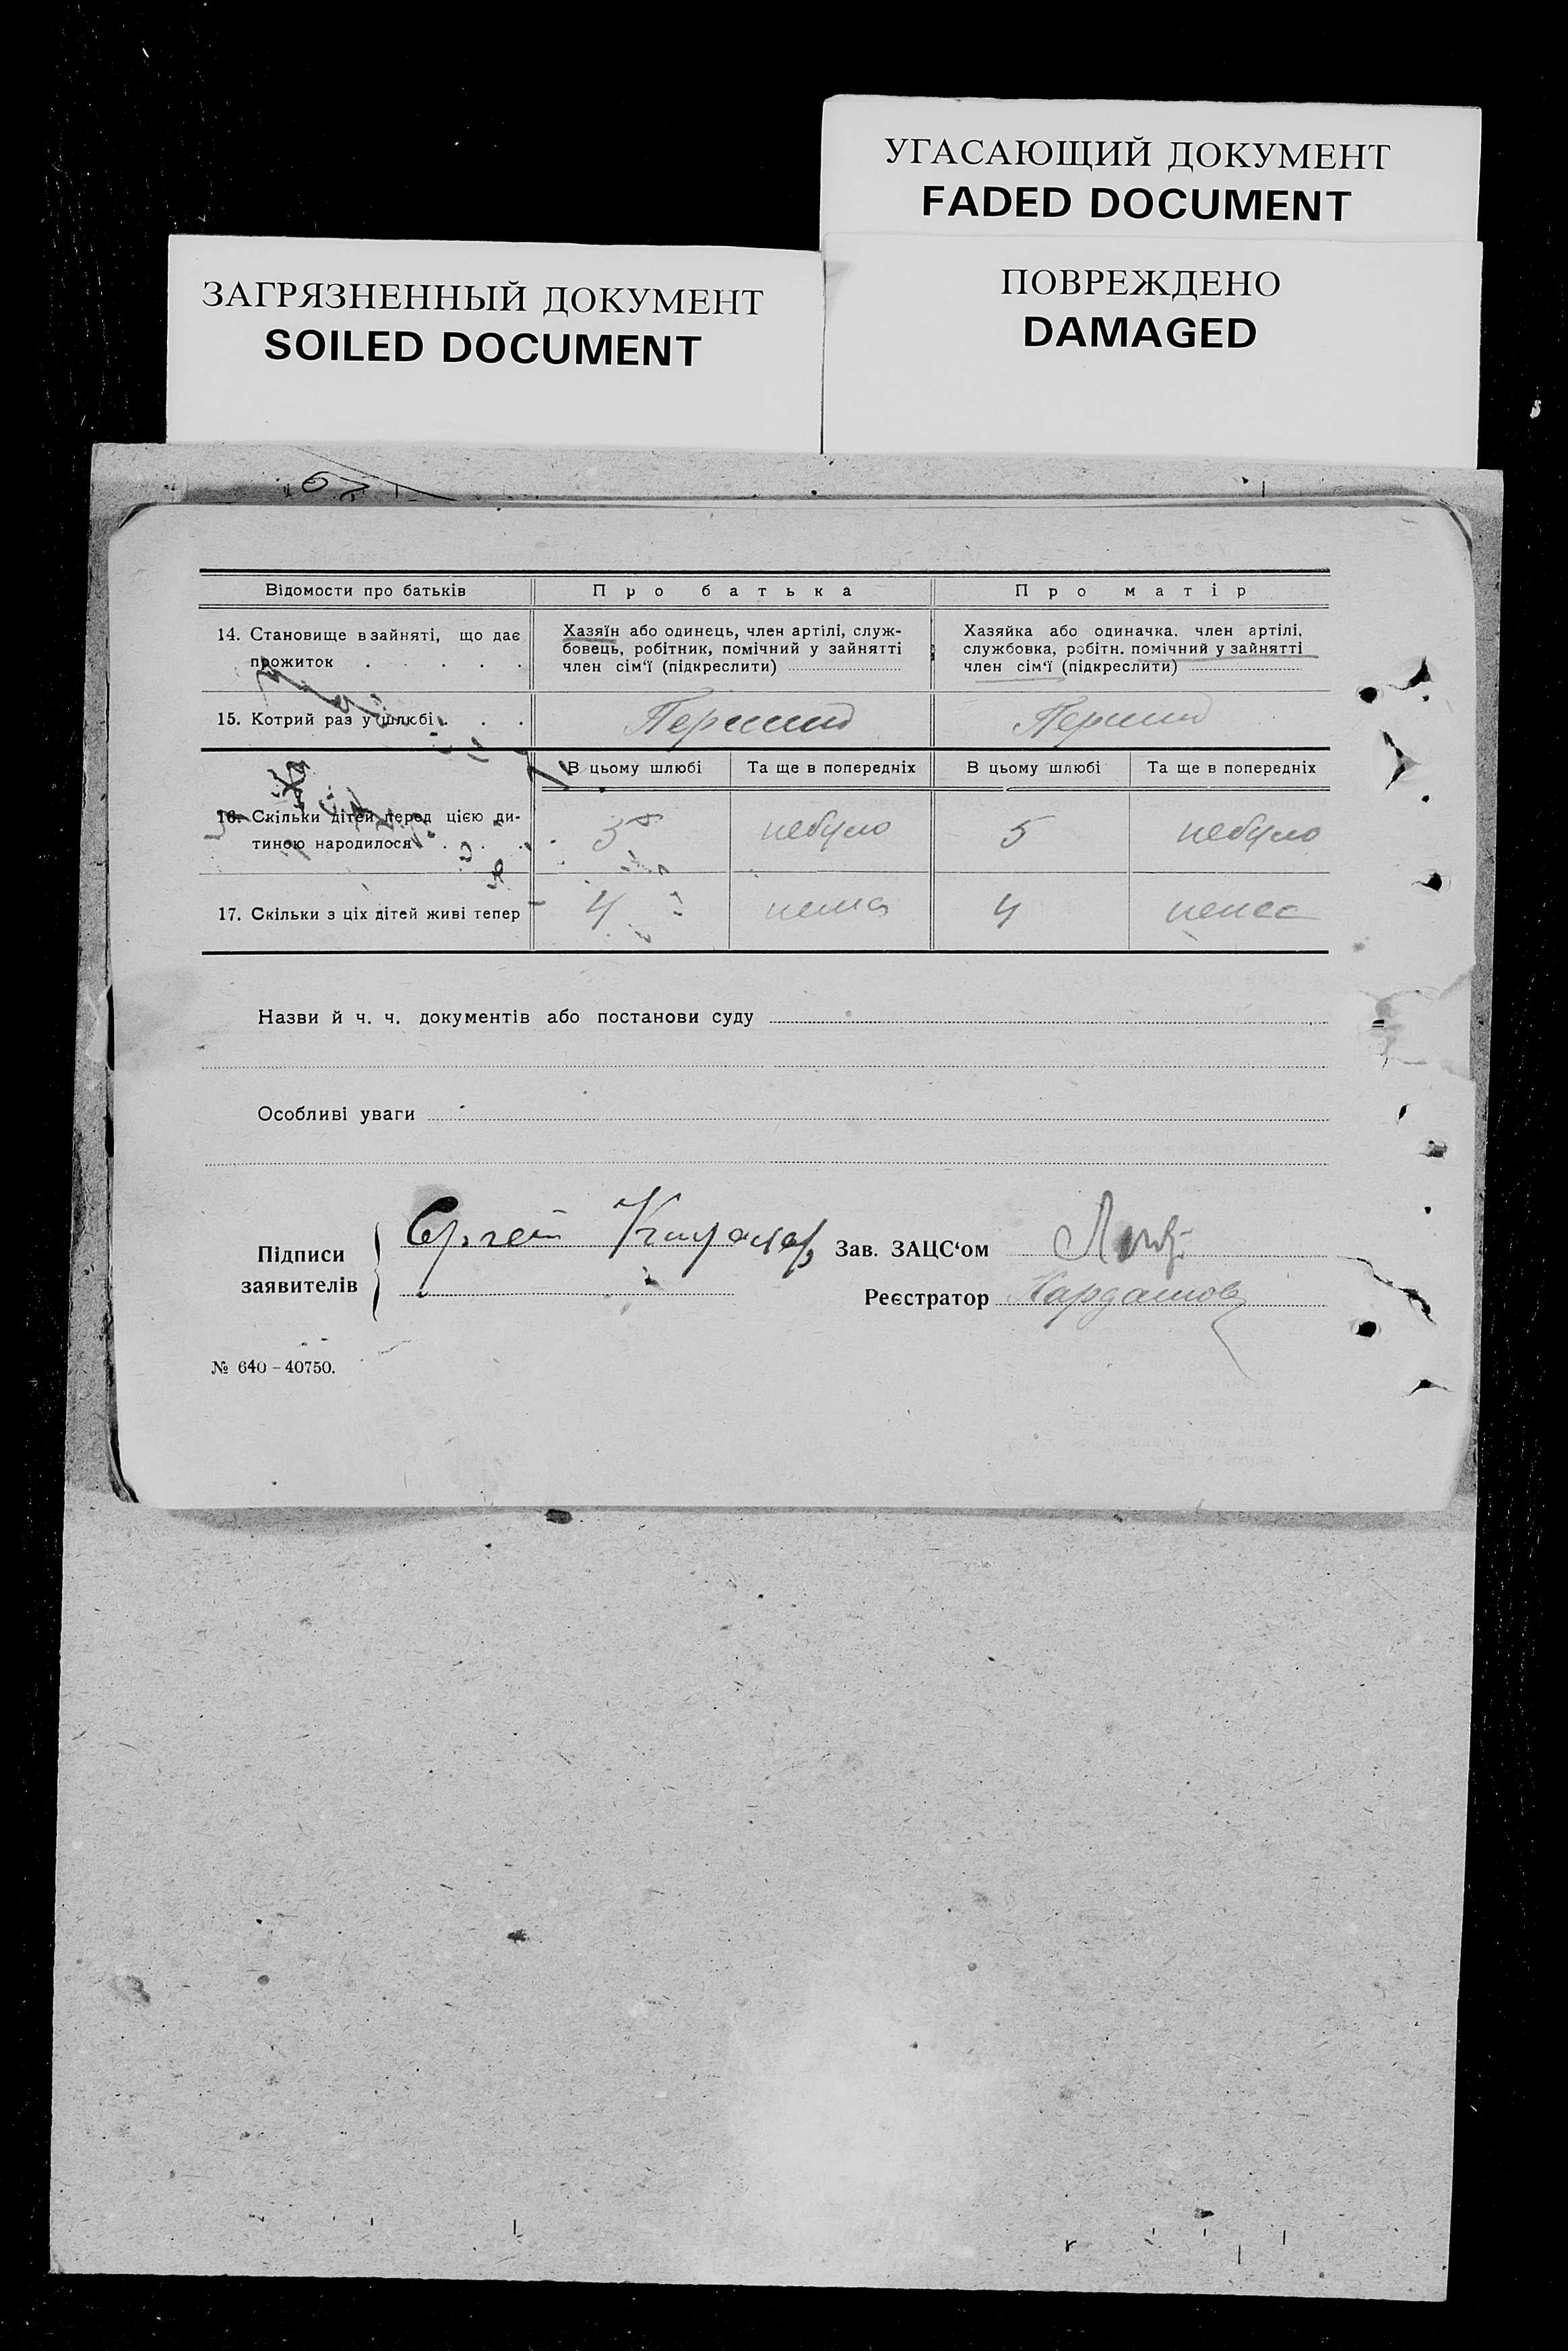 УГАСАЮЩИЙ ДОКУМЕНТ
FADED DOCUMENT
ЗАГРЯЗНЕННЫЙ ДОКУМЕНТ
SOILED DOCUMENT
ПОВРЕЖДЕНО
DAMAGED
Відомости про батьків Про батька Про матір
14. Становище в зайняті, що дає прожиток . . . . .
Хазяїн або одинець, член артілі, служ-
бовець, робітник, помічний у зайнятті
член сім'ї (підкреслити)
Хазяйка або одиначка, член артілі,
службовка, робітн. помічний у зайнятті
член сім'ї (підкреслити)
15. Котрий раз у шлюбі . . . Перший Перший
В цьому шлюбі Та ще в попередніх В цьому шлюбі Та ще в попередніх
16. Скільки дітей перед цією ди-
тиною народилося 5 небуло 5 небуло
17. Скільки з ціх дітей живі тепер 4 нема 4 нема
Назви й ч. ч. документів або постанови суду
Особливі уваги
Підписи
заявителів
Сергей
Зав. ЗАЦС'ом
Реєстратор Кардашов
№ 640-40750.